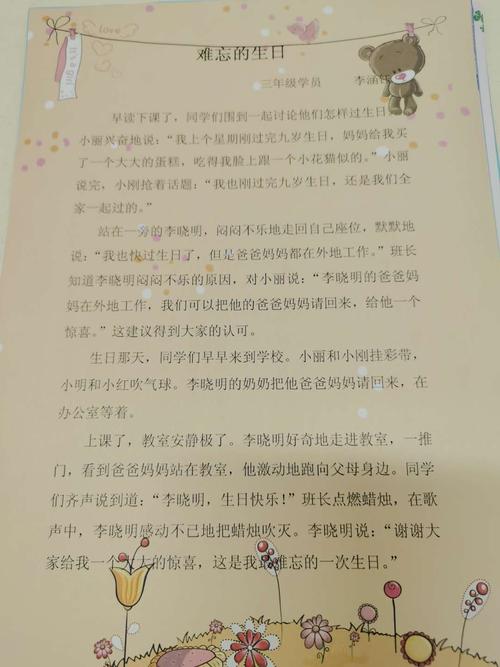 love
难忘的生日
三年级学员 李涵钰
早读下课了，同学们围到一起讨论他们怎样过生日，
小丽兴奋地说：“我上个星期刚过完九岁生日，妈妈给我买
了一个大大的蛋糕，吃得我脸上跟一个小花猫似的。”小丽
说完，小刚抢着话题：“我也刚过完九岁生日，还是我们全
家一起过的。”
站在一旁的李晓明，闷闷不乐地走回自己座位，默默地
说：“我也快过生日了，但是爸爸妈妈都在外地工作。”班长
知道李晓明闷闷不乐的原因，对小丽说：“李晓明的爸爸妈
妈在外地工作，我们可以把他的爸爸妈妈请回来，给他一个
惊喜。”这建议得到大家的认可。
生日那天，同学们早早来到学校。小丽和小刚挂彩带，
小明和小红吹气球。李晓明的奶奶把他爸爸妈妈请回来，在
办公室等着。
上课了，教室安静极了。李晓明好奇地走进教室，一推
门，看到爸爸妈妈站在教室，他激动地跑向父母身边。同学
们齐声说到道：“李晓明，生日快乐！”班长点燃蜡烛，在歌
声中，李晓明感动不已地把蜡烛吹灭。李晓明说：“谢谢大
家给我一个大大的惊喜，这是我最难忘的一次生日。”